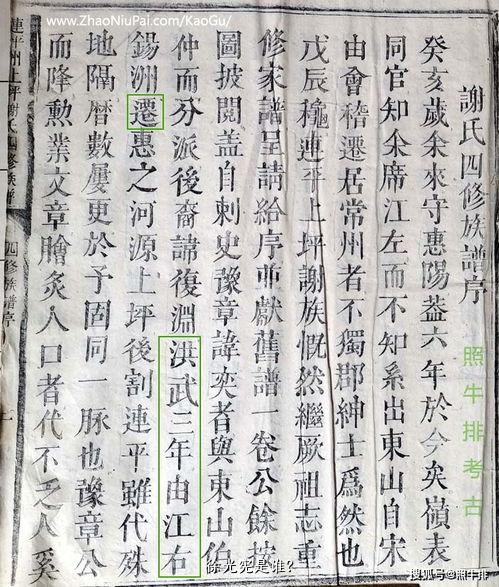 www.ZhaoNiuPai.com/KaoGu/
謝氏四修族譜序
癸亥歲余來守惠陽葢六年於今矣嶺表
同官知余席江左而不知系出東山自宋
由會稽遷居常州者不獨郡紳士爲然也
戊辰龝連平上坪謝族慨然繼厥祖志重
修家譜呈請給序並獻舊譜一卷公餘按
圖披閱盖自刺史豫章諱奕者與東山伯
仲而分派後裔諱復淵洪武三年由江右
鍚洲遷惠之河源上坪後割連平雖代殊
地隔曆數屢更於予固同一脉也豫章公
而降勲業文章膾炙人口者代不乏人奚
連平州上坪謝氏四修族譜
四修族譜序
照牛排考古
徐光宪是谁?
搜狐号@照牛排